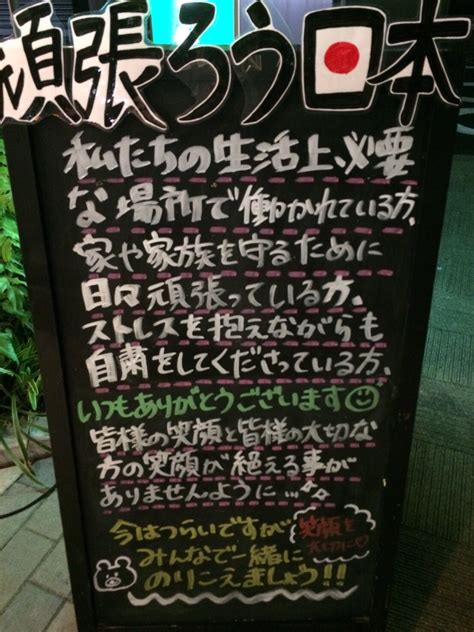 頑張ろう日本
私たちの生活上、必要
な場所で働かれている方、
家や家族を守るために
日々頑張っている方、
ストレスを抱えながらも
自粛をしてくださっている方、
いつもありがとうございます
皆様の笑顔と皆様の大切な
方の笑顔が絶える事が
ありませんように...
今はつらいですが
みんなで一緒に
のりこえましょう!!
笑顔を
大切に♡